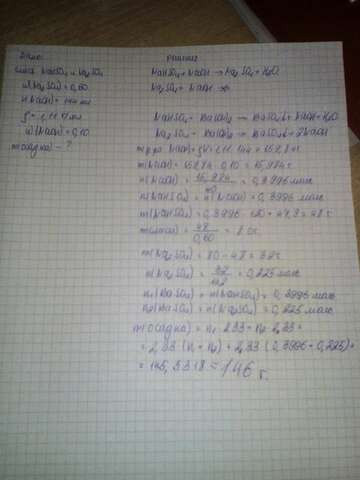 Дано:
смесь NaHSO₄ и Na₂SO₄
w(NaHSO₄) = 0,60
V(NaOH) = 144 мл
ρ = 1,11 г/мл
w(NaOH) = 0,10
m осадка) - ?
Решение
NaHSO₄ + NaOH → Na₂SO₄ + H₂O
Na₂SO₄ + NaOH →
NaHSO₄ + Ba(OH)₂ → BaSO₄↓ + NaOH + H₂O
Na₂SO₄ + Ba(OH)₂ → BaSO₄↓ + 2NaOH
m р-ра NaOH = ρV = 1,11 · 144 = 159,84 г
m(NaOH) = 159,84 · 0,10 = 15,984 г
n(NaOH) = 15,984 / 40 = 0,3996 моль
n(NaHSO₄) = n(NaOH) = 0,3996 моль
m(NaHSO₄) = 0,3996 · 120 = 47,9 = 48 г
m = 48 / 0,60 = 80 г
m(Na₂SO₄) = 80 - 48 = 32 г
n(Na₂SO₄) = 32 / 142 = 0,225 моль
n₁(BaSO₄) = n(NaHSO₄) = 0,3996 моль
n₂(BaSO₄) = n(Na₂SO₄) = 0,225 моль
m(осадка) = n₁ · 233 + n₂ · 233 =
= 233 (n₁ + n₂) = 233 (0,3996 + 0,225) =
= 145,5318 = 146 г.